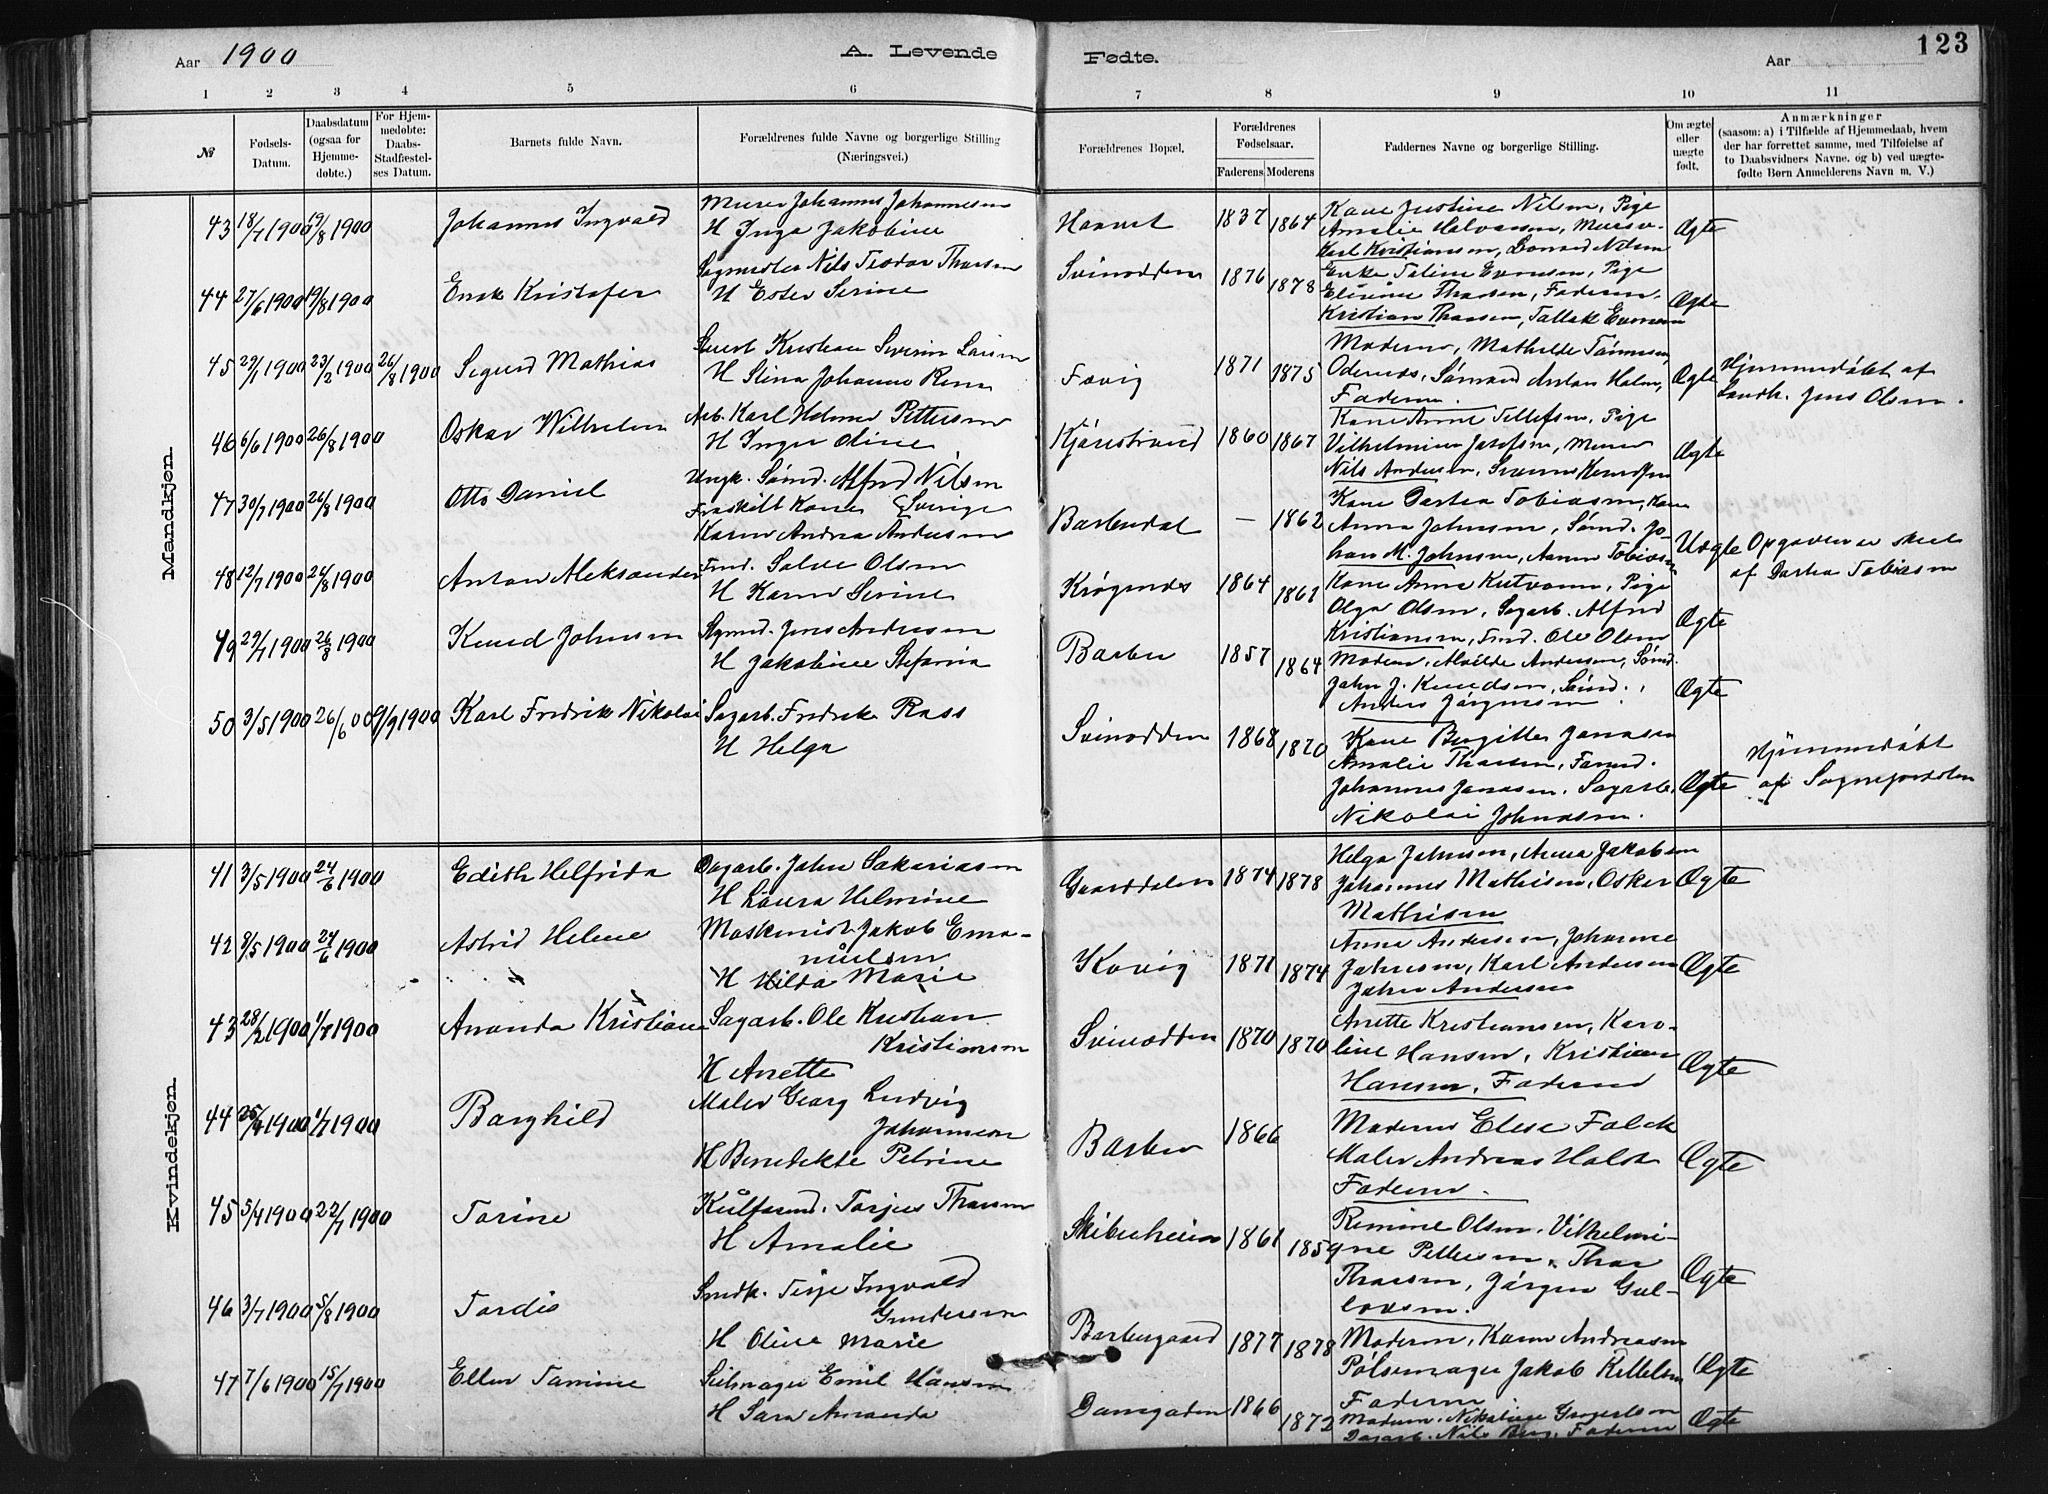 Aar 1900
A. Levende
Fødte.
Aar
123
1 2 3 4 5 6 7 8 9 10 11
№
Fødsels-Datum.
Daabsdatum (ogsaa for Hjemmedøbte.)
For Hjemmedøbte: Daabs-Stadfæstelses Datum.
Barnets fulde Navn.
Forældrenes fulde Navne og borgerlige Stilling (Næringsvei.)
Forældrenes Bopæl.
Forældrenes Fødselsaar.
Faderens Moderens
Faddernes Navne og borgerlige Stilling.
Om ægte eller uægte født.
Anmærkninger
(saasom: a) i Tilfælde af Hjemmedaab, hvem
der har forrettet samme, med Tilføielse af
to Daabsvidners Navne. og b) ved uægte-
fødte Børn Anmelderens Navn m. V.)
Mandkjøn.
43 18/7 1900 19/8 1900 Johannes Ingvald
Murer Johannes Johannesen
H Inga Jakobine
1837 1864
Kone Justine Nilsen, Pige
Amalie Halvorsen, Murer
Karl Kristiansen, Nilsen
Ægte
44 27/6 1900 19/8 1900 Kristofer
Nils Teodor Thorsen
H Ester Serine
Svinodden 1876 1878
Enke Teline Evensen, Pige
Thorsen, Faderen,
Kristian Thorsen, Tallak Evensen
Ægte
45 29/1 1900 23/2 1900 26/8 1900 Sigurd Mathias
Kristian Severin Larsen
H Stina Johanne
1871 1875
Moderen, Mathilde Tønnesen,
Anton Holm,
Faderen.
Ægte
Hjemmedøbt af
Jens Olsen.
46 6/6 1900 26/8 1900 Oskar Wilhelm
Arb. Karl Helmer Pettersen
H Inger Oline
Kjønstrand 1860 1867
Kone Anne Tellefsen, Pige
Vilhelmine Josefsen, Murer
Nils Andersen,
Ægte
47 30/7 1900 26/8 1900 Otto Daniel
Ungk. Sømd. Alfred Nilsen
Fraskilt Kone Sverige
Karen Andrea Andersen
Barbudal — 1862
Kone Dorthea Tobiasen, Kone
Anna Johnsen, Sømd. Jo-
han M. Johnsen, Tobiasen
Uægte
Opgaven er skeet
af Dorthea Tobiasen
48 12/7 1900 26/8 1900 Anton Aleksander
Salve Olsen
H Karen Serine
Krøgenes 1864 1861
Kone Anne Pige
Olga Olsen, Sagarb. Alfred
Kristiansen, Ole Olsen
Ægte
49 29/7 1900 26/8 1900 Knud Johnsen
Jens Andersen
H Jakobine Stefania
Barbu 1857 1864
Moderen, Alvilde Andersen, Sømd.
John J. Knudsen, Sømd.
Anders Jørgensen.
Ægte
50 3/5 1900 26/6 00 9/9 1900 Karl Fredrik Nikolai
Sagarb. Fredrik Rass
H Helga
Svinodden 1868 1870
Kone Birgitte Jonasen
Amalie Thorsen,
Johannes Jonasen, Sagarb.
Nikolai Johnasen.
Ægte
Hjemmedøbt
af Sognejordmoren
Kvindekjøn.
41 3/5 1900 24/6 1900 Edith Helfrida
Dagarb. John Sakariasen
H Laura Helmine
Gaarddalen 1874 1878
Helga Johnsen, Anna Jakobsen
Johannes Mathisen, Oskar
Mathisen
Ægte
42 8/5 1900 24/6 1900 Astrid Helene
Maskinist Jakob Ema-
nuelsen
H Hilda Marie
Kovig 1871 1874
Anna Andersen, Johanne
Johnsen, Karl Andersen
John Andersen
Ægte
43 28/2 1900 1/7 1900 Amanda Kristiane
Sagarb. Ole Kristian
Kristiansen
H Anette
Svinodden 1870 1870
Anette Kristiansen, Karo-
line Hansen, Kristian
Hansen, Faderen
Ægte
44 25/4 1900 1/7 1900 Borghild
Maler Georg Ludvig
Johannesen
H Benedikte Petrine
Barbu 1866
Moderen Elise Falck
Maler Andreas Holst
Faderen.
Ægte
45 5/4 1900 22/7 1900 Torine
Torjus Thorsen
H Amalie
Skibenheien 1861 1859
Olsen, Vilhelmi-
ne Pettersen, Thor
Thorsen, Jørgen Gul-
lovsen.
Ægte
46 3/7 1900 5/8 1900 Tordis
Smdk. Terje Ingvald
Gundersen
H Oline Marie
Barbugaard 1877 1878
Moderen, Karen Andreasen
Pølsemager Jakob Kittelsen
Faderen
Ægte
47 7/6 1900 15/7 1900 Ellen Tomine
Seilmager Emil Hansen
H Sara Amanda
Damgaden 1866 1872
Moderen,
Dagarb. Nils Berg, Faderen
Ægte